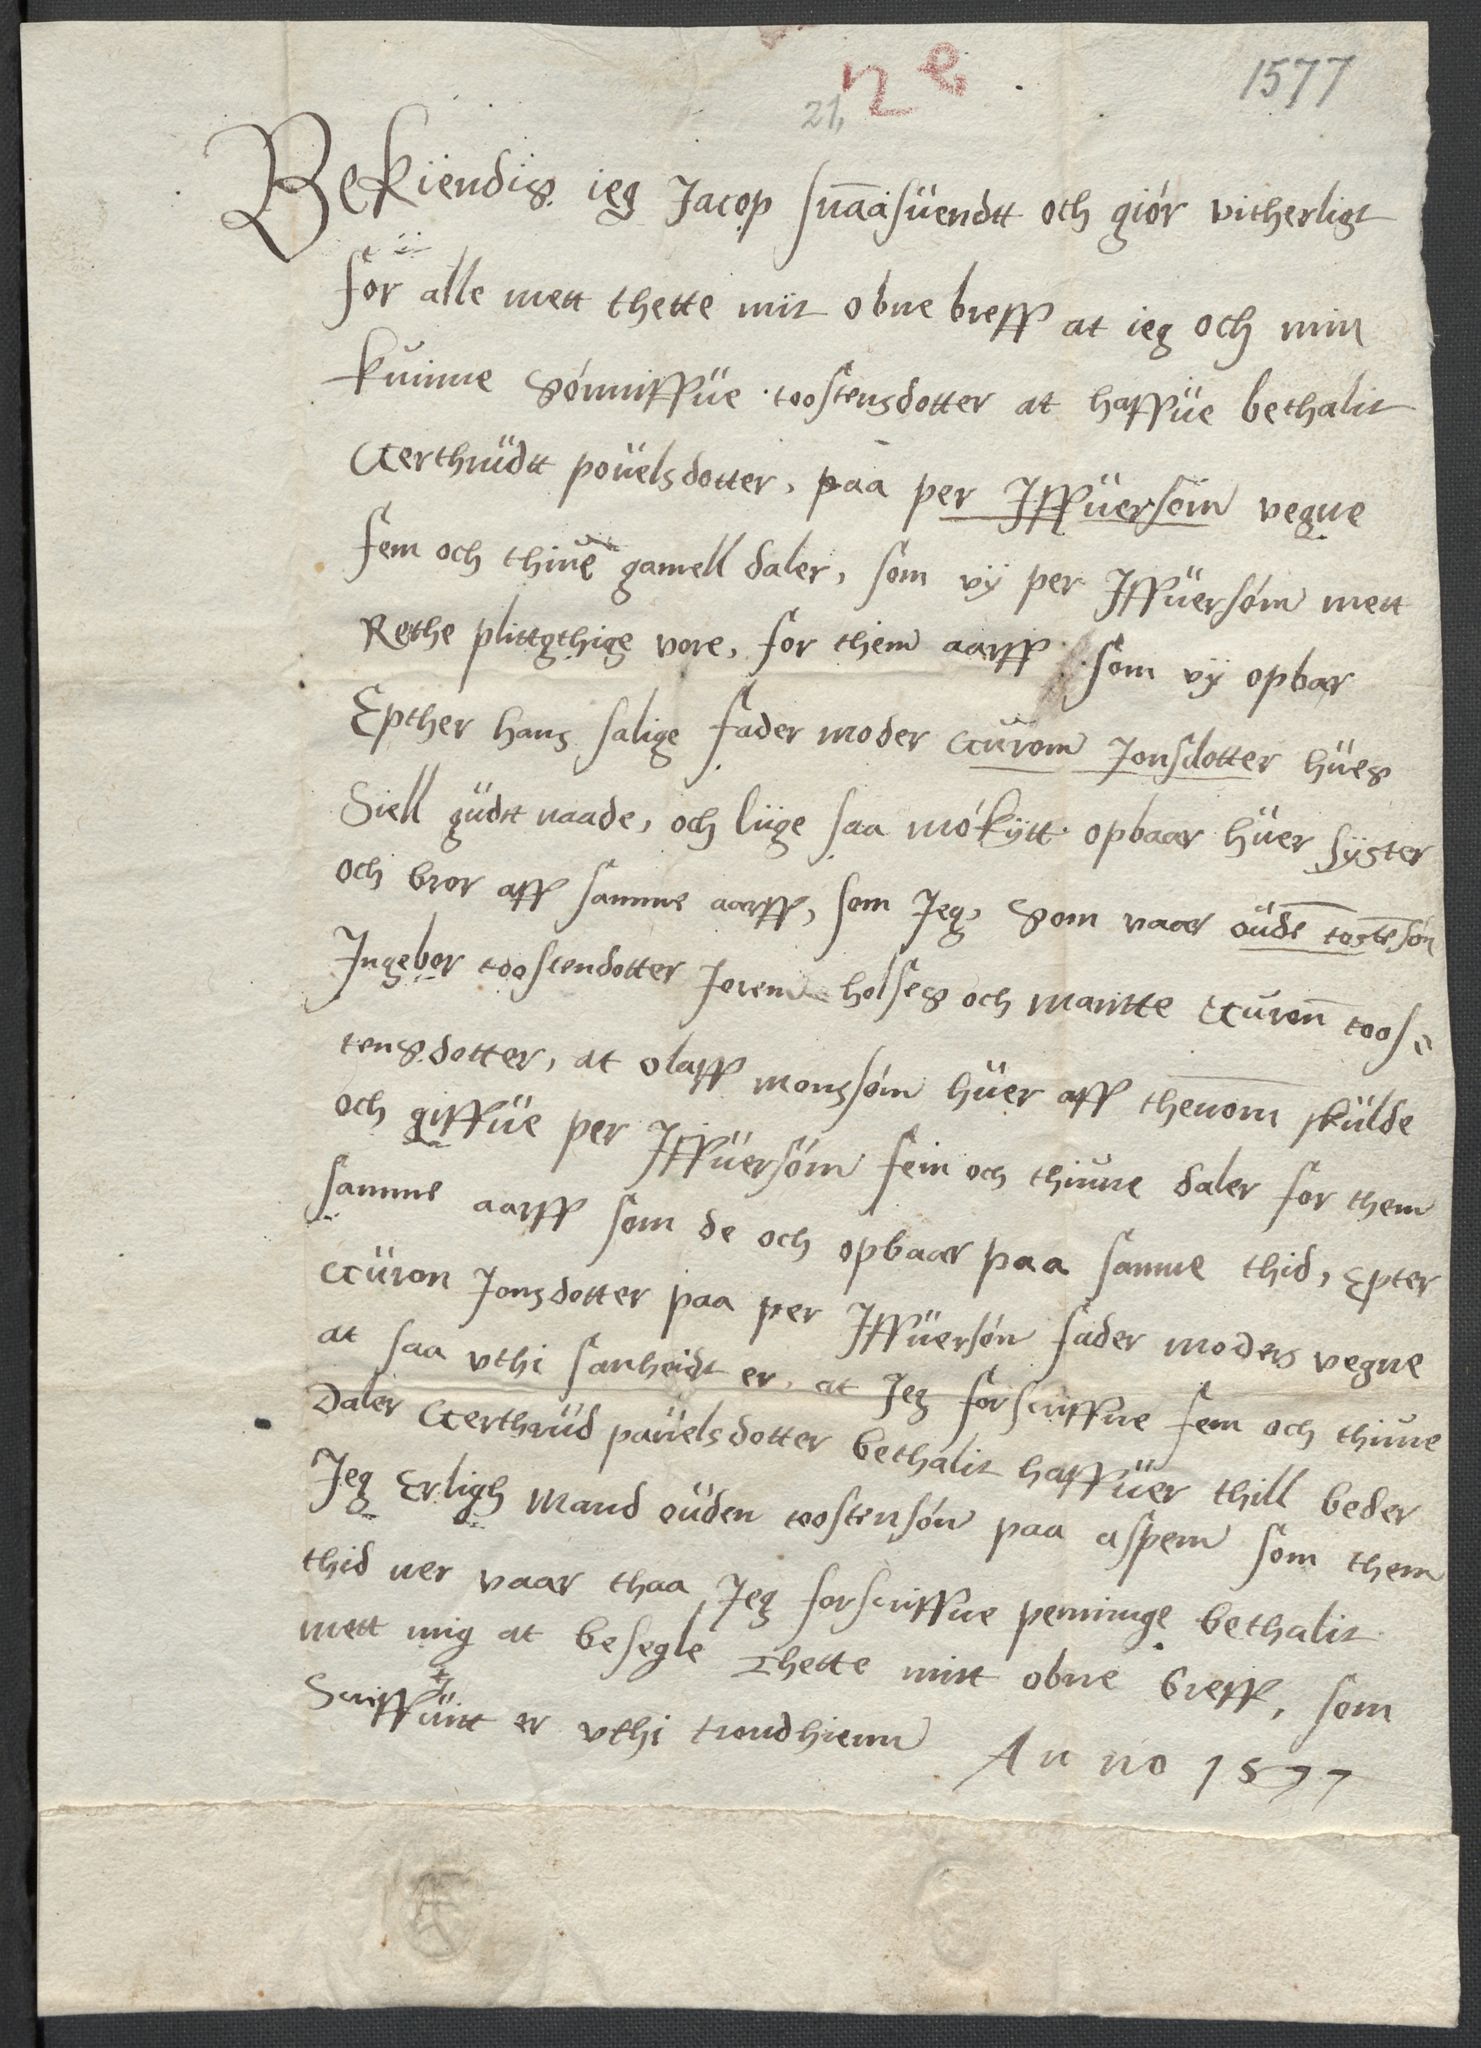 n e
21,
1577
Bekiendis ieg Jacop snaasuendtt och giór vitherligt
for alle mett thette mit obne breff at ieg och min
kuinne Gónniffue toostensdotter at haffue bethalit
Gerthrudtt pouelsdotter, paa per Iffuersein vegne
fem och thiue gamell daler, som vij per Iffuersóm mett
Rethe plittgthige vore, for them aarff som vij opbar
Epther hans salige fader moder Gurom Jonsdotter hues
Siell gudtt naade, och liige saa mókytt opbaar huer syster
och bror aff samme aarff, som Jeg, Som vaar oude tostesón
Ingebor toostendotter Jorem holses och Maritte Guron toos-
tensdotter, at olaff monssóm huer aff thenom skulde
och giffue per Iffuersóm fem och thiuue daler for them
samme aarff som de och opbaar paa samme thid, Epter
Guron Jonsdotter paa per Iffuersón fader moders vegne
at saa vthi sanheidt er, at Jeg forscriffne fem och thiuue
Daler Gerthrud pauelsdotter bethalit haffuer thill beder
Jeg Erligh Mand ouden toostensón paa aspem som them
thid ner vaar thaa Jeg forscriffne penninge bethalit
mett mig at besegle Thette mitt obne Breff, som
Scriffuitt er vthi trondhiem Anno 1577